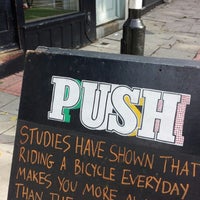 PUSH
STUDIES HAVE SHOWN THAT
RIDING A BICYCLE EVERYDAY
MAKES YOU MORE
THAN THE